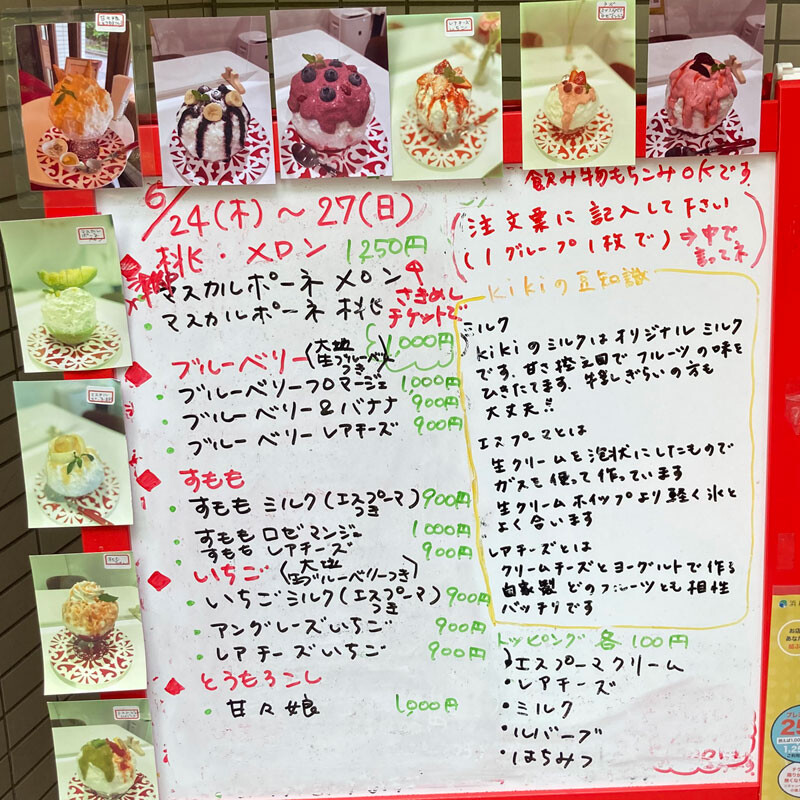 6/24(木)～27(日)
桃・メロン 1250円
マスカルポーネ メロン
マスカルポーネ 桃
さきめし
チケットで
1000円
ブルーベリー(大地
生ブルーベリー
つき)
ブルーベリーフロマージュ 1000円
ブルーベリー&バナナ 900円
ブルーベリーレアチーズ 900円
すもも
すももミルク(エスプーマ
つき) 900円
すももロゼマンジェ 1000円
すももレアチーズ 900円
いちご(大地
生ブルーベリーつき)
いちごミルク(エスプーマ
つき) 900円
アングレーズいちご 900円
レアチーズいちご 900円
とうもろこし
甘々娘 1,000円
飲み物もちこみOKです
注文票に記入して下さい
(1グループ1枚で)→中で
言ってネ
kikiの豆知識
ミルク
kikiのミルクはオリジナルミルク
です。甘さ控え目でフルーツの味を
ひきたてます。牛乳ぎらいの方も
大丈夫!!
エスプーマとは
生クリームを泡状にしたもので
ガスを使って作っています
生クリームホイップより軽く氷と
よく合います
レアチーズとは
クリームチーズとヨーグルトで作る
自家製 どのフルーツとも相性
バッチリです
トッピング 各100円
エスプーマクリーム
・レアチーズ
・ミルク
・ルバーブ
・はちみつ